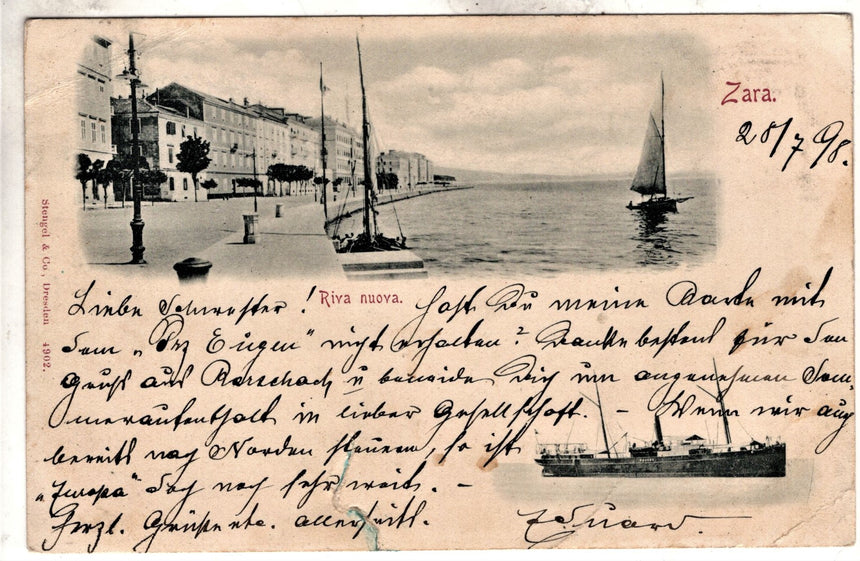 Zara.
28/7 98.
Stengel & Co, Dresden 4902.
Riva nuova.
Liebe Schwester! Hast Du meine Karte mit
dem „Prz Eugen" nicht erhalten? Danke bestens für den
Gruß aus Rorschach u beneide Dich um angenehmen Som-
meraufenthalt in lieber Gesellschaft. – Wenn wir auch
bereits nach Norden steuern, so ist
„Europa" doch noch sehr weit. –
Herzl. Grüße etc. allerseits.
Eduard.